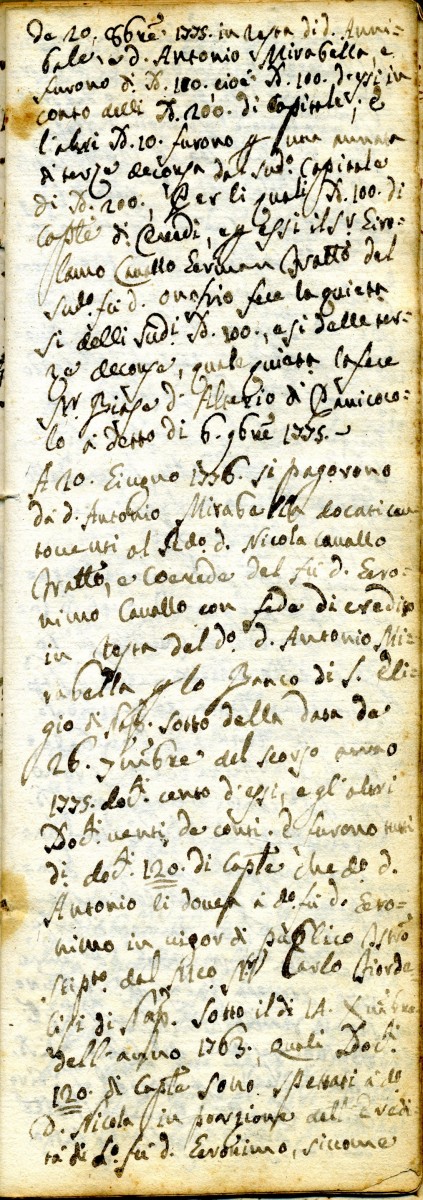 de 20. 8bre 1775. in testa di d. Anni=
bale, e d. Antonio Mirabella, e
furono di D. 110. cioè D. 100. d'essi in
conto delli D. 200. di Capitale, e
l'altri D. 10. furono p una annata
di terze decorsa dal sudo. Capitale
di D. 200., Per li quali D. 100. di
Caple di Eredi, e p essi il Sr Giro=
lamo Cavallo German Fratto del
sudo. fù d. Onofrio fece la quieta
si delli sudi D. 100., e si delle ter=
ze decorse, quale quieta la fece
Nr. Biase d'Alterio di Panicoco=
lo a detto di 6. 9bre 1775.
A 20. Giugno 1776. si pagorono
da d. Antonio Mirabella docati cen
toventi al Sudo. d. Nicola Cavallo
Fratto, e Coerede del fù d. Gero=
nimo Cavallo con fede di credito
in testa del do. d. Antonio Mi=
rabella p lo Banco di S. Eli=
gio di Nap. sotto della data de
26. 7mbre del scorso anno
1775. doti. cento d'essi, e gl'altri
Doti. venti de conti. E furono tutti
di doti. 120. di Caple che do. d.
Antonio li dovea a do. fù d. Gero=
nimo in vigor di publico Istro
stipto. dal Mco Nr Carlo Fiorde=
lisi di Nap. sotto il di 14. Xmbre
dell'anno 1763., quali Doti.
120. di Caple sono spettati a do
D. Nicola in porzione dell'Eredi
tà di do. fù d. Geronimo, siccome